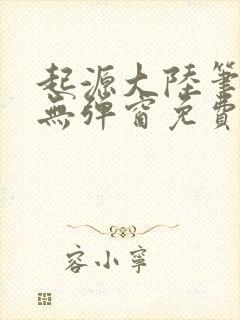 起源大陸筆
無彈窗免費
容小寧